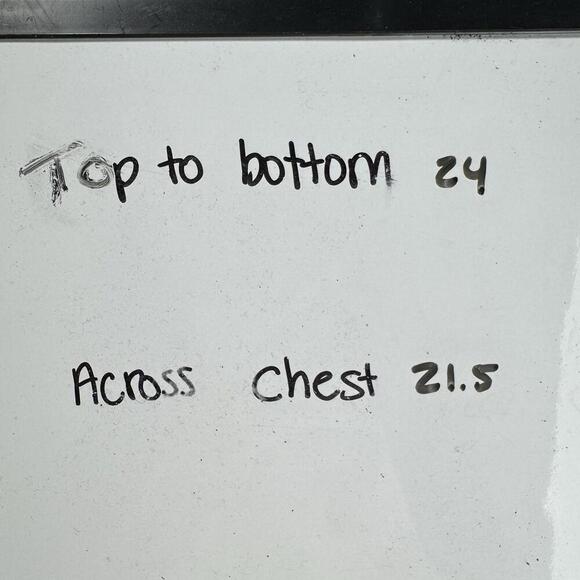 Top to bottom 24
Across Chest 21.5